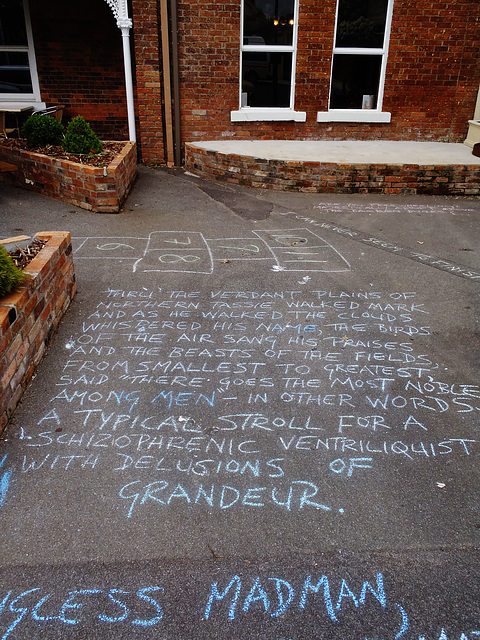 6 7
8
THRU' THE VERDANT PLAINS OF
NORTHERN TASSIE WALKED MARK
AND AS HE WALKED THE CLOUDS
WHISPERED HIS NAME, THE BIRDS
OF THE AIR SANG HIS PRAISES
AND THE BEASTS OF THE FIELDS,
FROM SMALLEST TO GREATEST,
SAID "THERE GOES THE MOST NOBLE
AMONG MEN" - IN OTHER WORDS
A TYPICAL STROLL FOR A
SCHIZIOPHRENIC VENTRILIQUIST
WITH DELUSIONS OF
GRANDEUR.
NGLESS MADMAN,